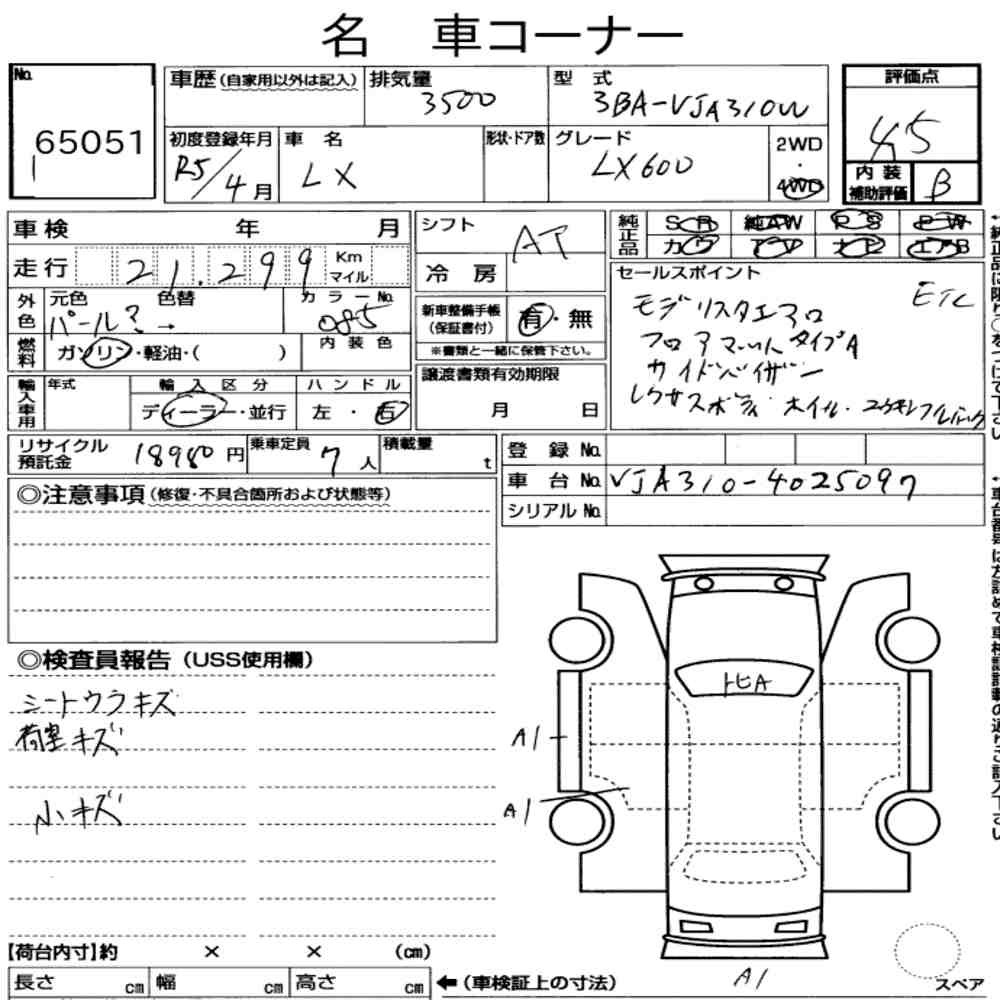 名 車コーナー
No.
65051
車歴(自家用以外は記入)
排気量
3500
型 式
3BA-VJA310W
評価点
4.5
初度登録年月
R5/4月
車 名
LX
形状・ドア数
グレード
LX600
2WD
・
4WD
内装
補助評価
B
車検 年 月
シフト
AT
純正品
SR 純AW PS PW
走行 21,299 Km マイル
冷房
セールスポイント
ETC
モデリスタエアロ
フロアマット タイプA
サイドバイザー
外色
元色
パール
色替
カラーNo.
085
新車整備手帳
(保証書付)
有・無
※書類と一緒に保管下さい。
燃料
ガソリン・軽油・( )
内装色
譲渡書類有効期限
月 日
輸入車用
年式
輸入区分
ディーラー・並行
ハンドル
左・右
リサイクル
預託金
18980円
乗車定員
7人
積載量
t
登 録 No.
車 台 No. VJA310-4025097
シリアル No.
◎注意事項(修復・不具合箇所および状態等)
◎検査員報告(USS使用欄)
シートウラキズ
荷室キズ
小キズ
トヒA
A1
A1
A1
【荷台内寸】約 × × (cm)
長さ cm 幅 cm 高さ cm
←(車検証上の寸法)
スペア